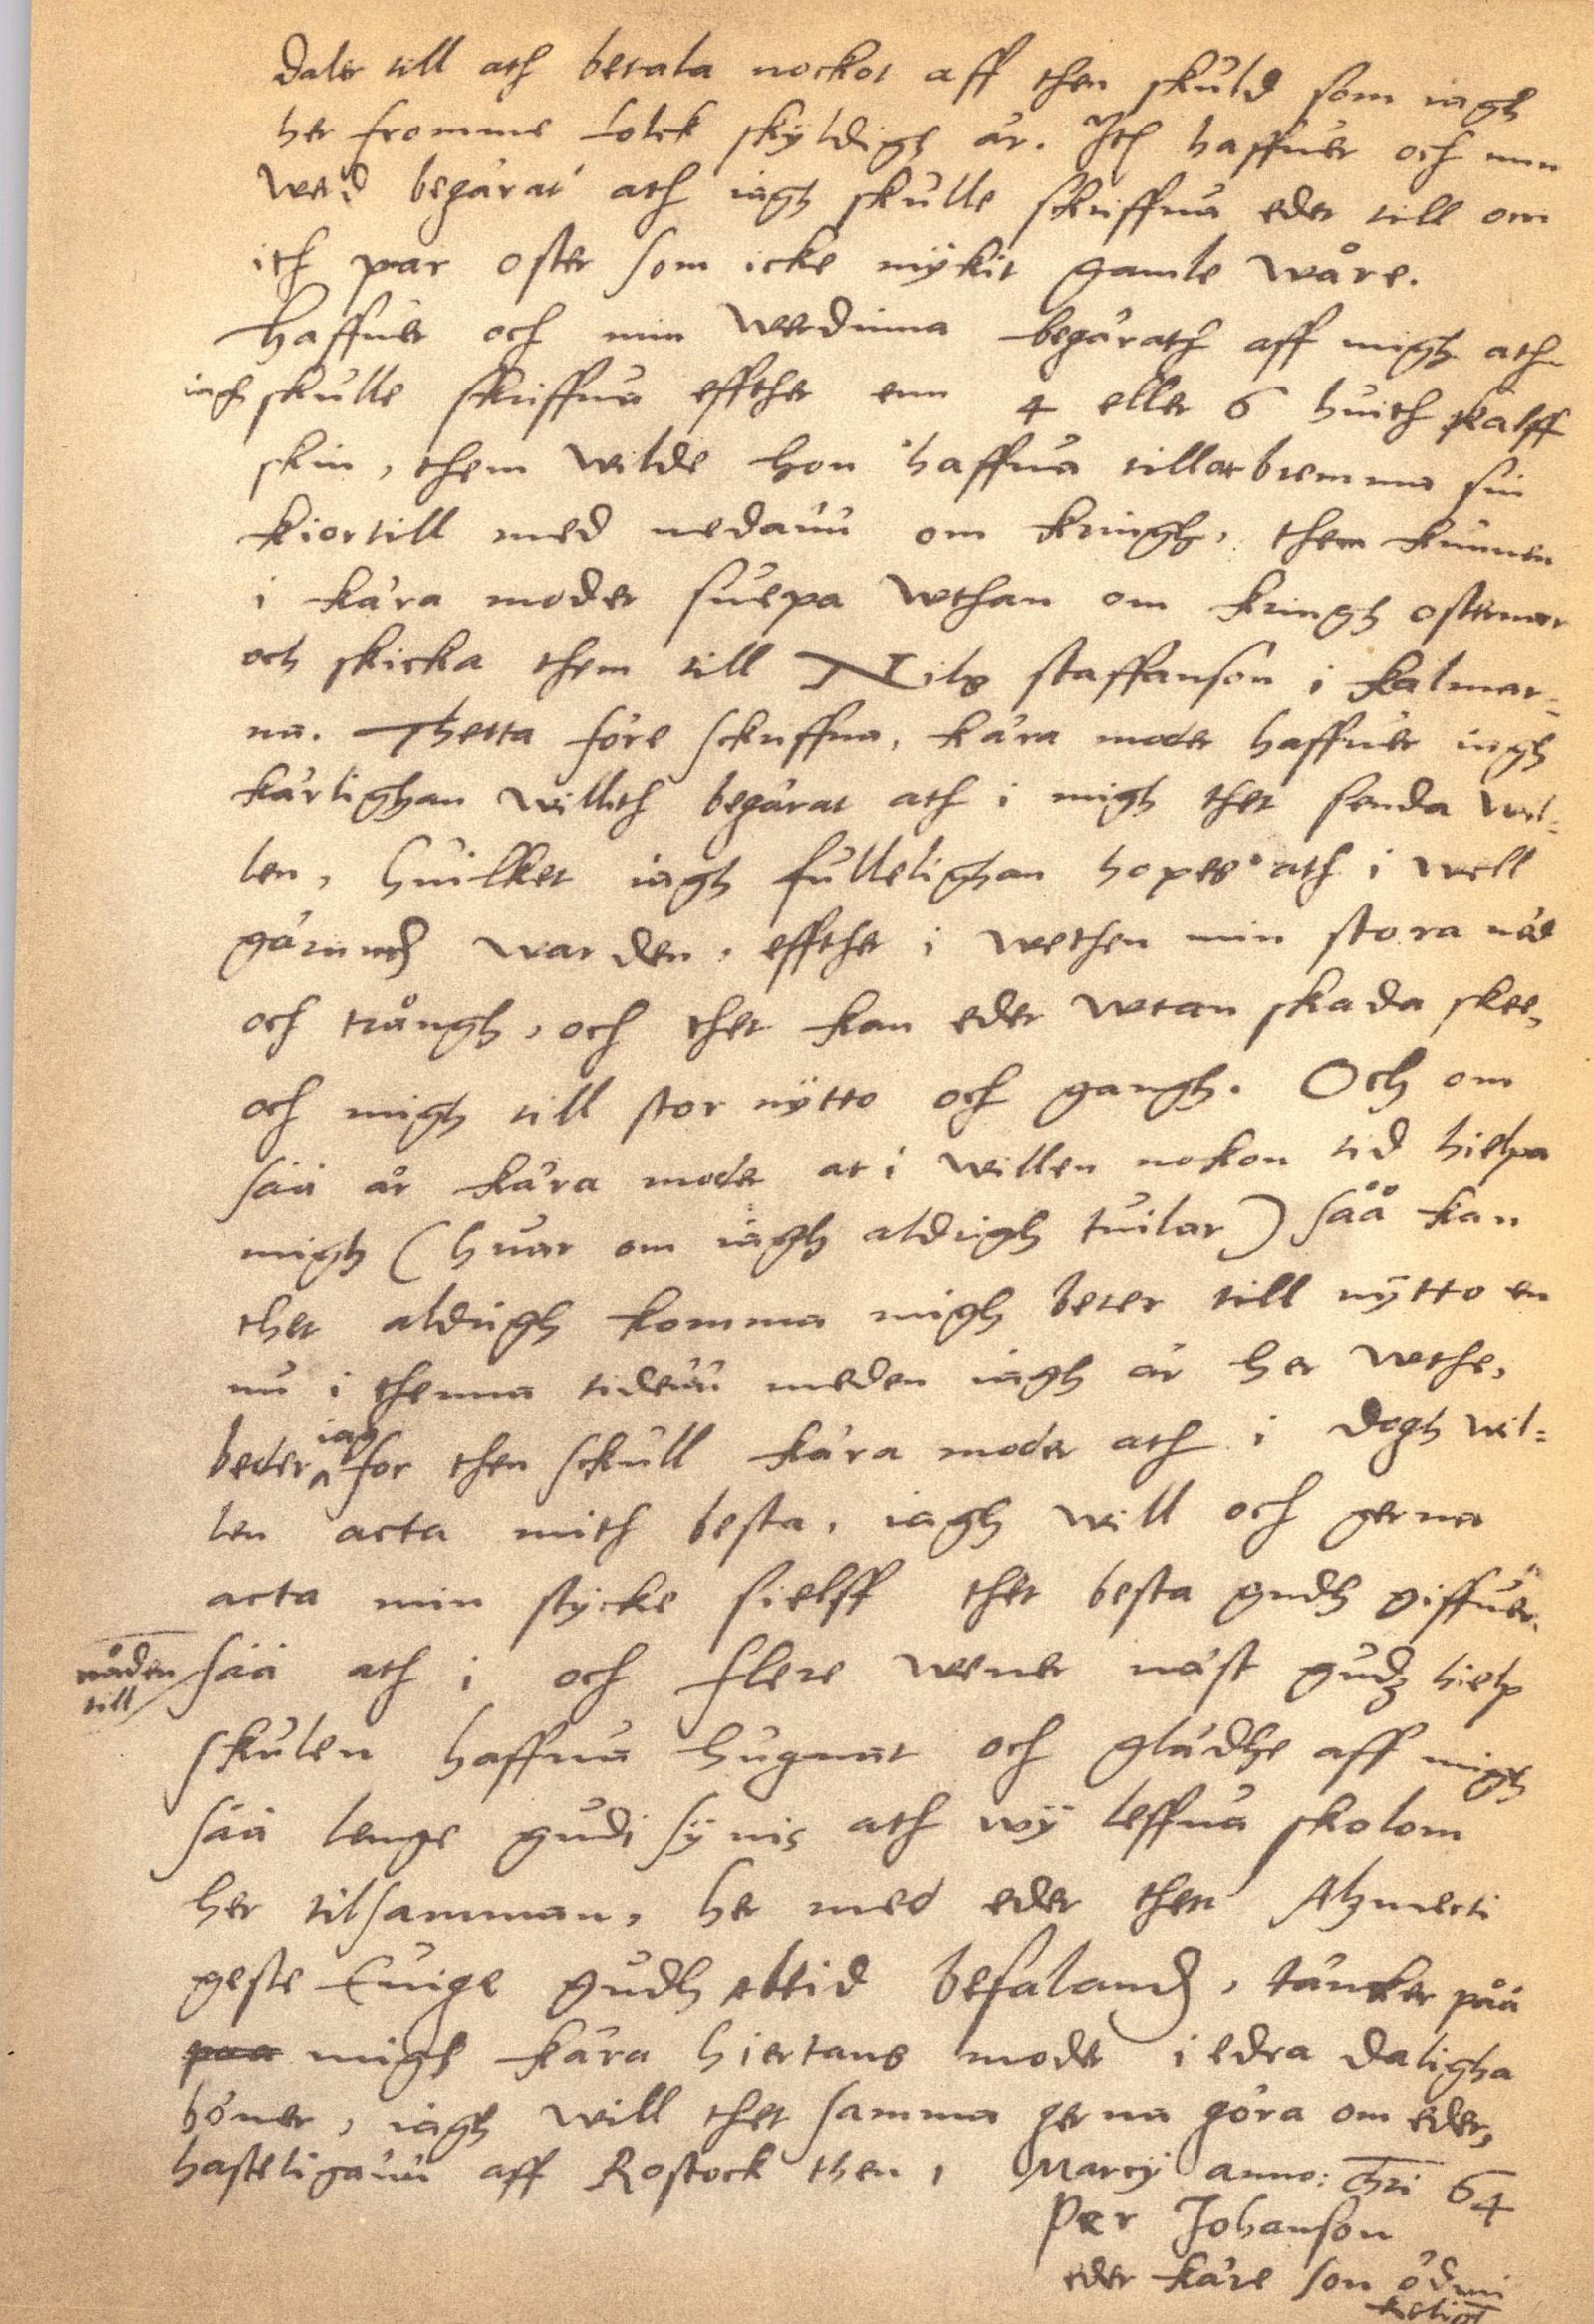 daler till ath betala nockot aff then skuld som iagh
her fromme folck skyldigh är. Ith haffuer och min
werd begärat ath iagh skulle skriffua eder till om
ith par oster som icke mykit gamle wåre.
Haffuer och min werdinna begärath aff migh ath
iagh skulle skriffua effther enn 4 eller 6 huith kalff
skin, them wilde hon haffua till at bremma sin
kiortill med nedann om kringh, them kunnen
i kära moder suepa wthan om kringh osterner
och skicka them till Nils staffanson i kalmar=
na. Thetta före schriffna, kära moder haffuer iagh
kärlighan willith begärat ath i migh thet senda wil=
len, huilket iagh fullelighan hopes ath i well
görinnd warden, effther i wethen min stora nöd
och trångh, och thet kan eder wtan skada skee,
och migh till stor nÿtto och gangh. Och om
såå är kära moder at i willen nokon tid hielpa
migh (huar om iagh aldrigh tuilar) såå kan
thet aldrigh komma migh beter till nÿtto en
nu i thenna tidenn meden iagh är her wthe,
beder iagh for then schull kära moder ath i dogh wil=
len acta mith besta, iagh will och gerna
acta min stycke sielff thet besta gudh giffuer
nåden
till
såå ath i och flere wener näst gudz hielp
skulen haffua hugnat och glädhe aff migh
såå lenge gudi sÿnis ath wÿ leffua skolom
her tilsamman, her med eder then Alzmecti
geste Euige gudh altid befaland, täncker påå
paa migh kära hiertans moder i edra daligha
böner, iagh will thet samma gerna göra om eder,
hasteligann aff Rostock then 1 Marcÿ anno: Chri 64
Per Johanson
eder käre son ödmi
keligh